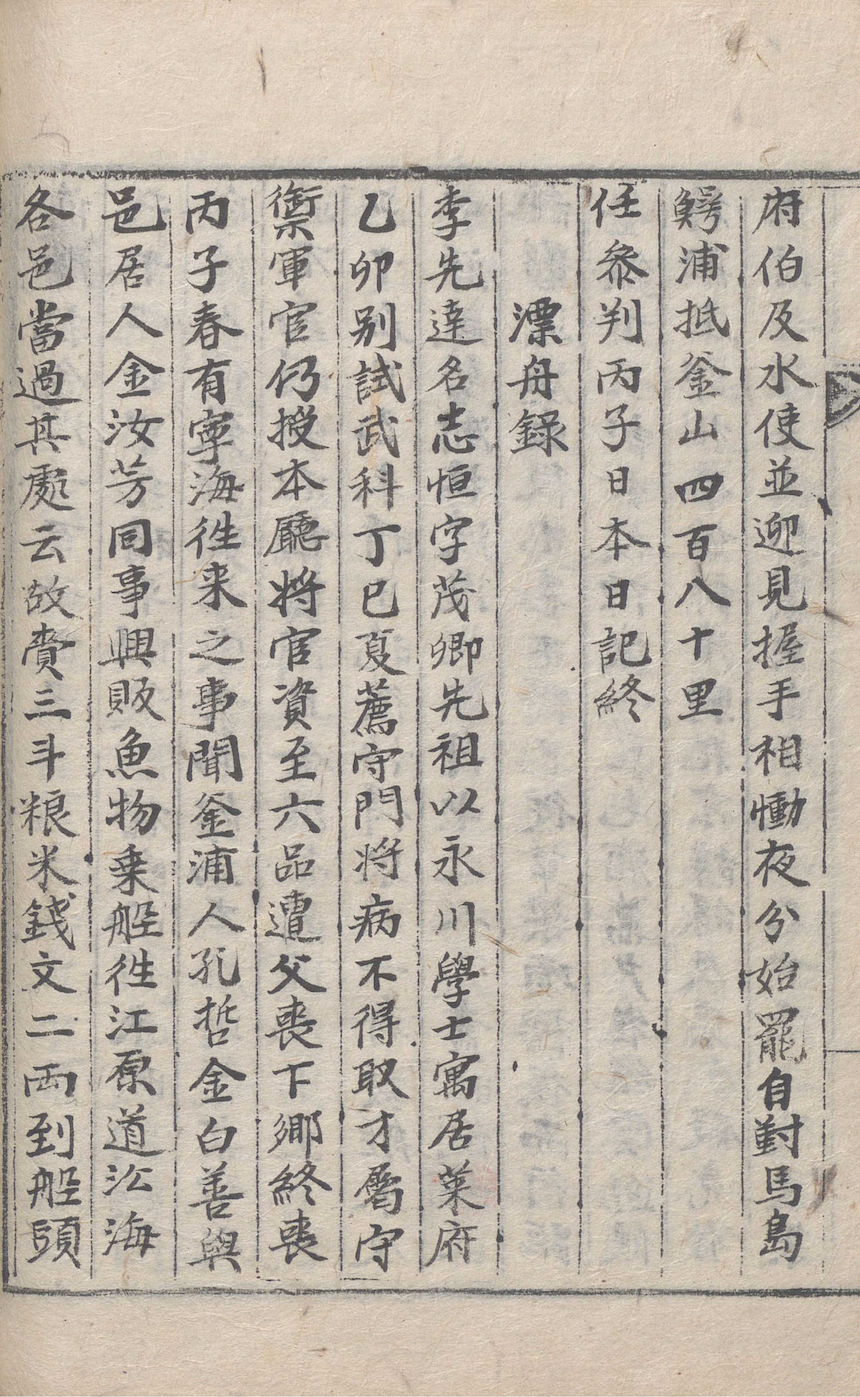 府伯及水使並迎見握手相慟夜分始罷自對馬島
鰐浦抵釜山四百八十里
任參判丙子日本日記終
漂舟錄
李先達名志恒字茂卿先祖以永川學士寓居萊府
乙卯別試武科丁巳夏薦守門將病不得取才屬守
禦軍官仍授本廳將官資至六品遭父喪下鄉終喪
丙子春有寧海徃来之事聞釜浦人孔哲金白善與
邑居人金汝芳同事興販魚物乗船徃江原道沿海
各邑當過其處云故賫三斗粮米錢文二兩到船頭